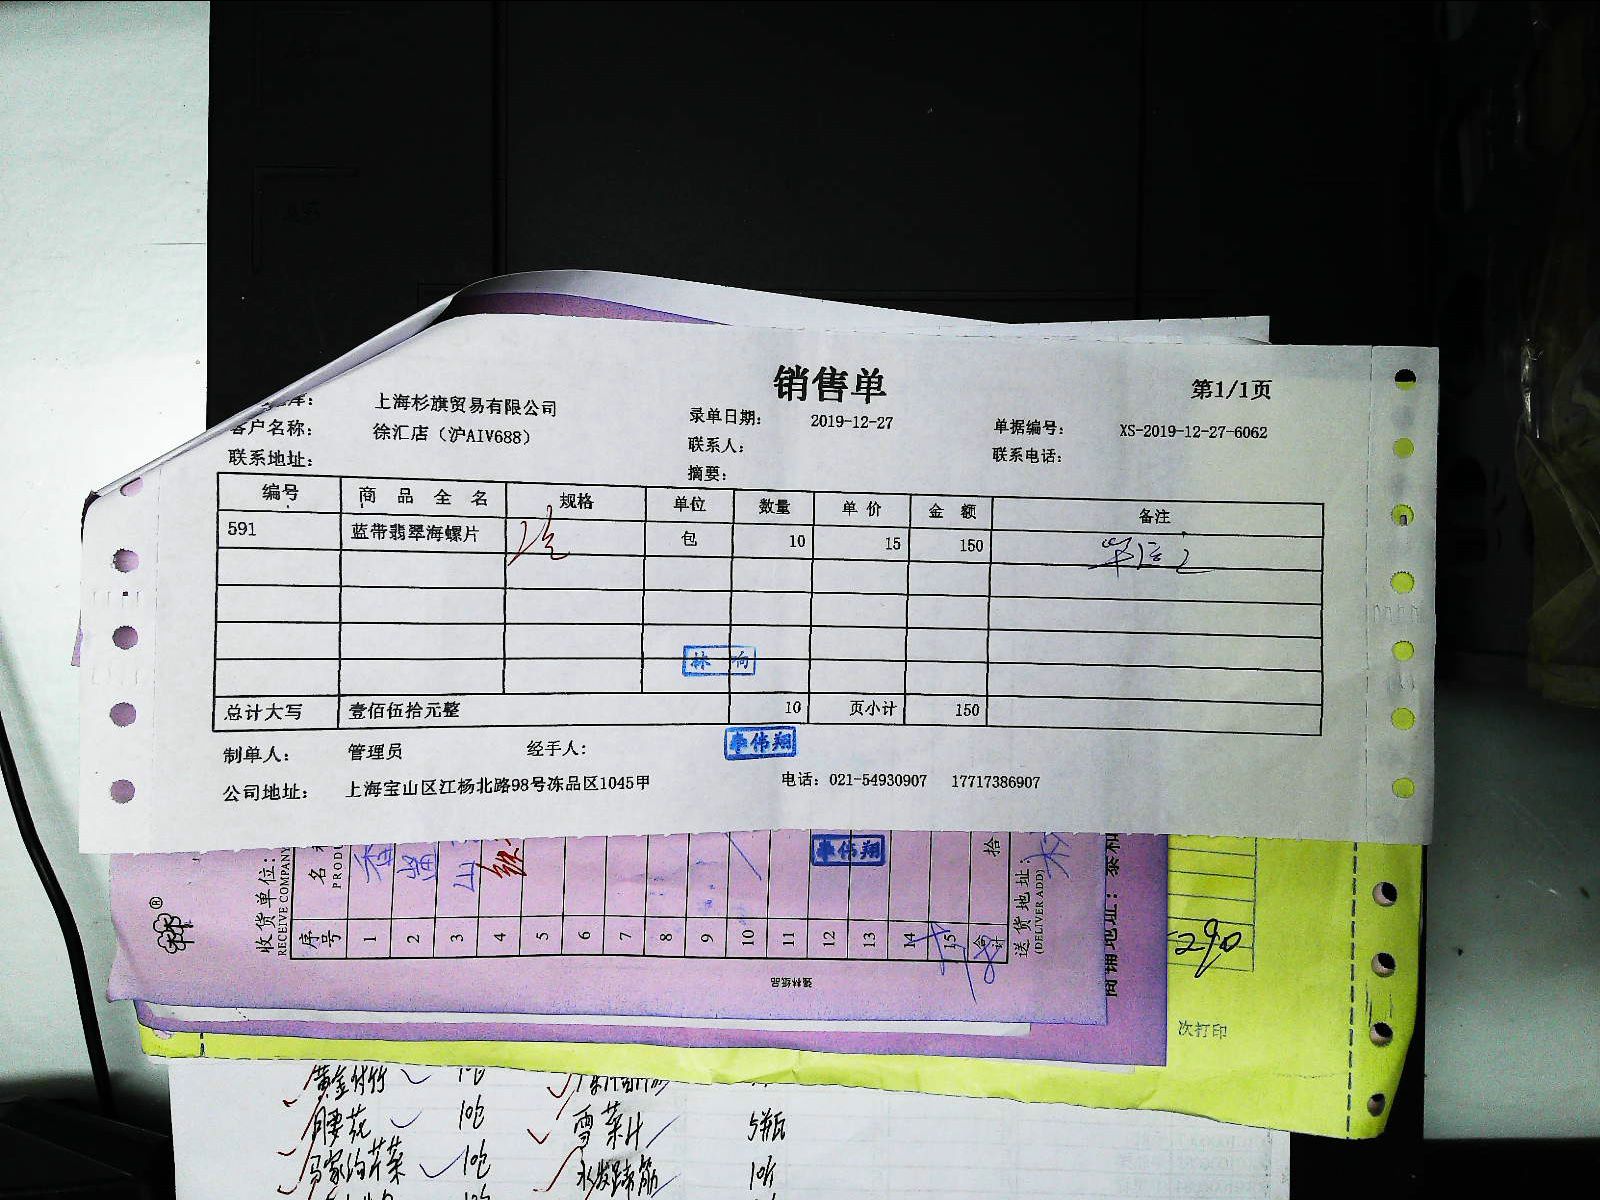 销售单
第1/1页
上海杉旗贸易有限公司
录单日期: 2019-12-27
单据编号: XS-2019-12-27-6062
客户名称: 徐汇店（沪AIV688）
联系人:
联系电话:
联系地址:
摘要:
编号 商品全名 规格 单位 数量 单价 金额 备注
591 蓝带翡翠海螺片 包 10 15 150
林响
总计大写 壹佰伍拾元整 10 页小计 150
制单人: 管理员 经手人:
李伟翔
公司地址: 上海宝山区江杨北路98号冻品区1045甲 电话: 021-54930907 17717386907
收货单位:
RECEIVE COMPANY
序号
1
2
3
4
5
6
7
8
9
10
11
12
13
14
15
合计
拾
李伟翔
送货地址:
(DELIVER ADD)
商铺地址: 泰和
290
次打印
10包
雪菜汁 5瓶
马家沟芹菜 10包
水发蹄筋 10斤